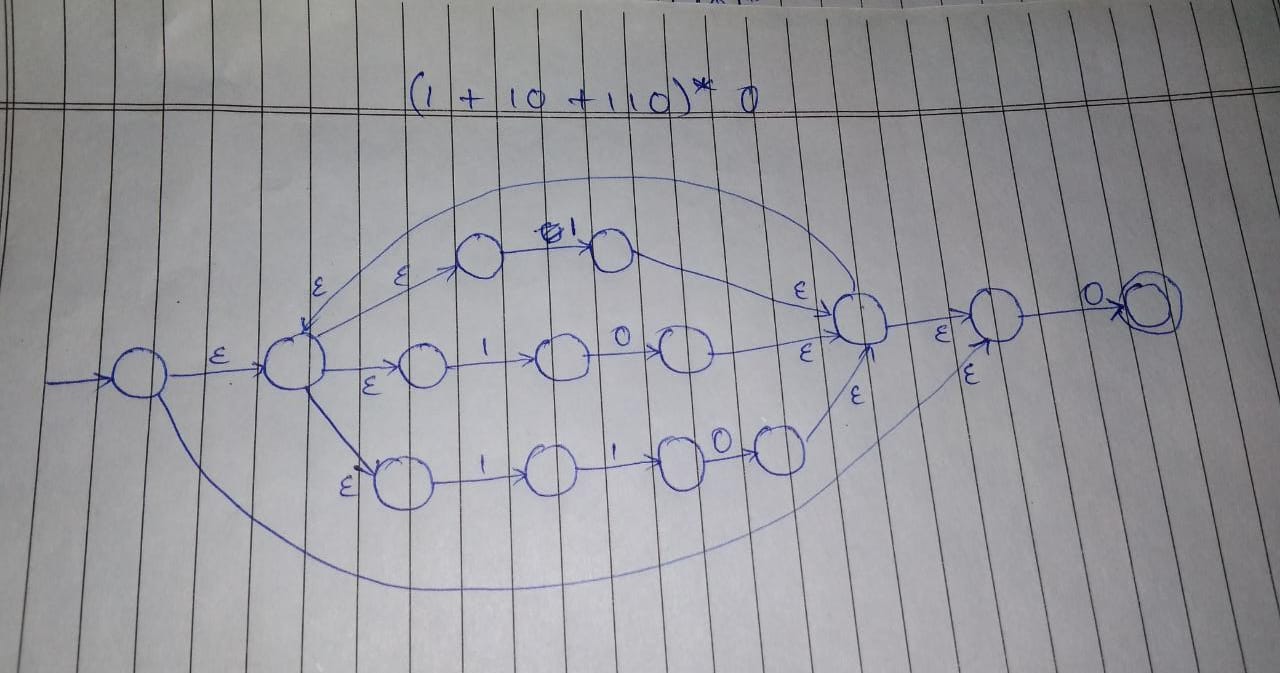 (1 + 10 + 110)* 0
ε ε 1 ε
ε ε 1 0 ε ε 0
ε 1 1 0 ε ε